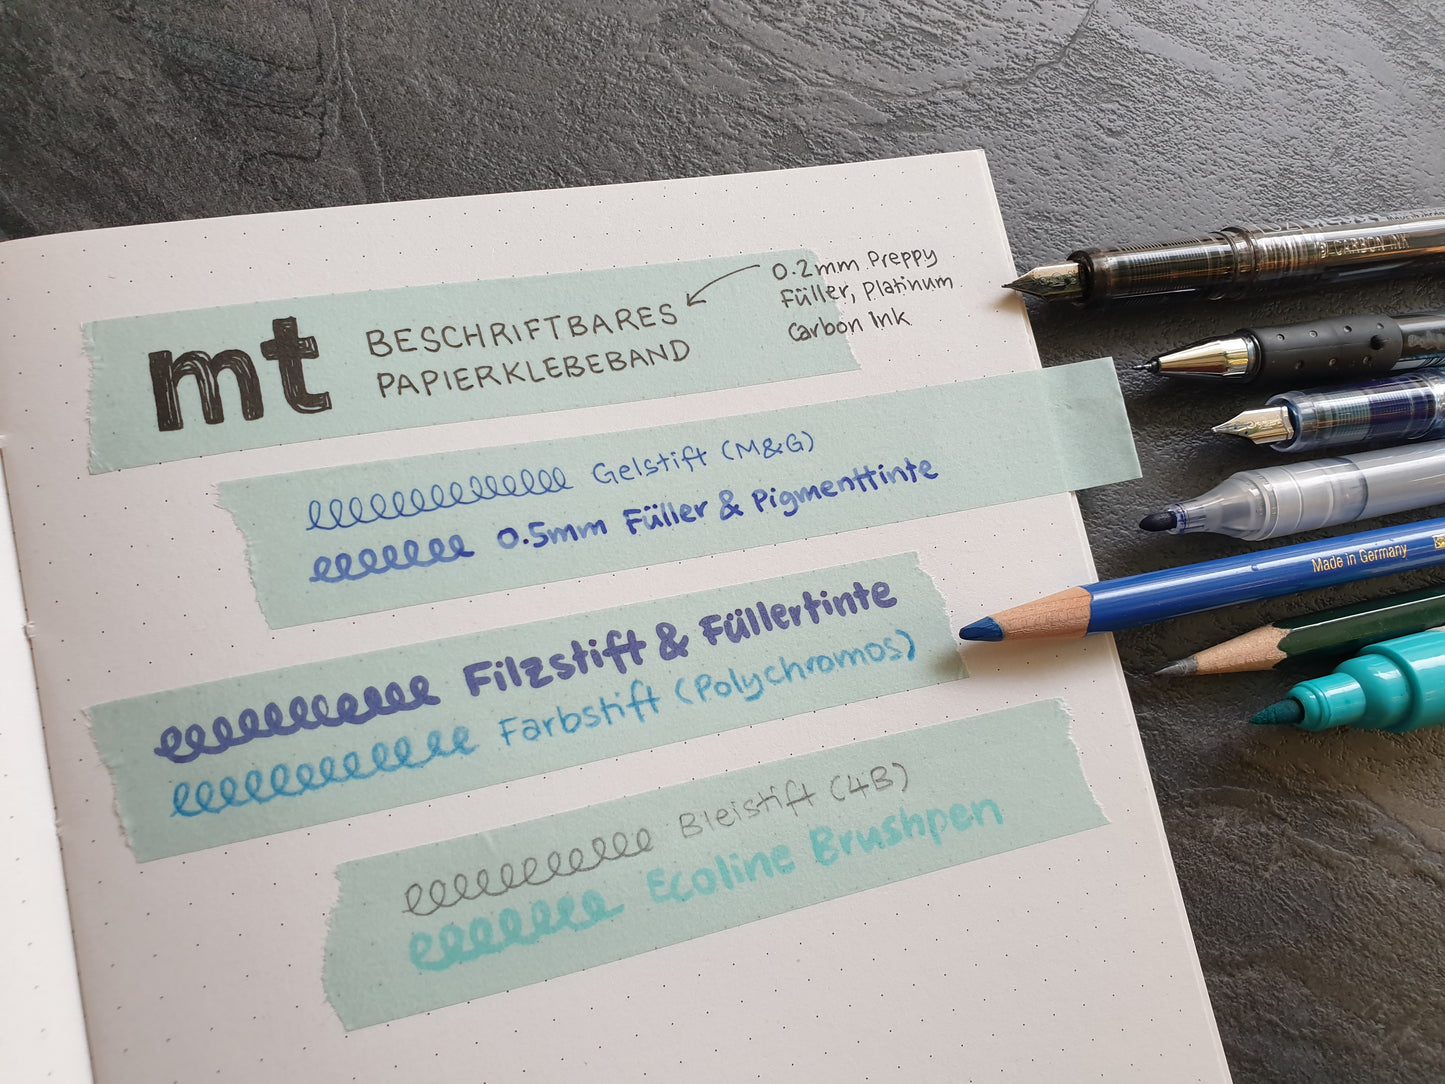 mt
BESCHRIFTBARES
PAPIERKLEBEBAND
0.2mm Preppy
Füller, Platinum
Carbon Ink
Gelstift (M&G)
0.5mm Füller & Pigmenttinte
Filzstift & Füllertinte
Farbstift (Polychromos)
Bleistift (4B)
Ecoline Brushpen
CARBON INK
Made in Germany